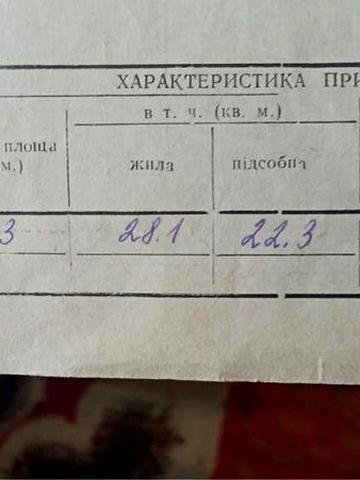 ХАРАКТЕРИСТИКА ПРИ
в т. ч. (кв. м.)
площа
м.)
жила
підсобна
3
28.1
22.3